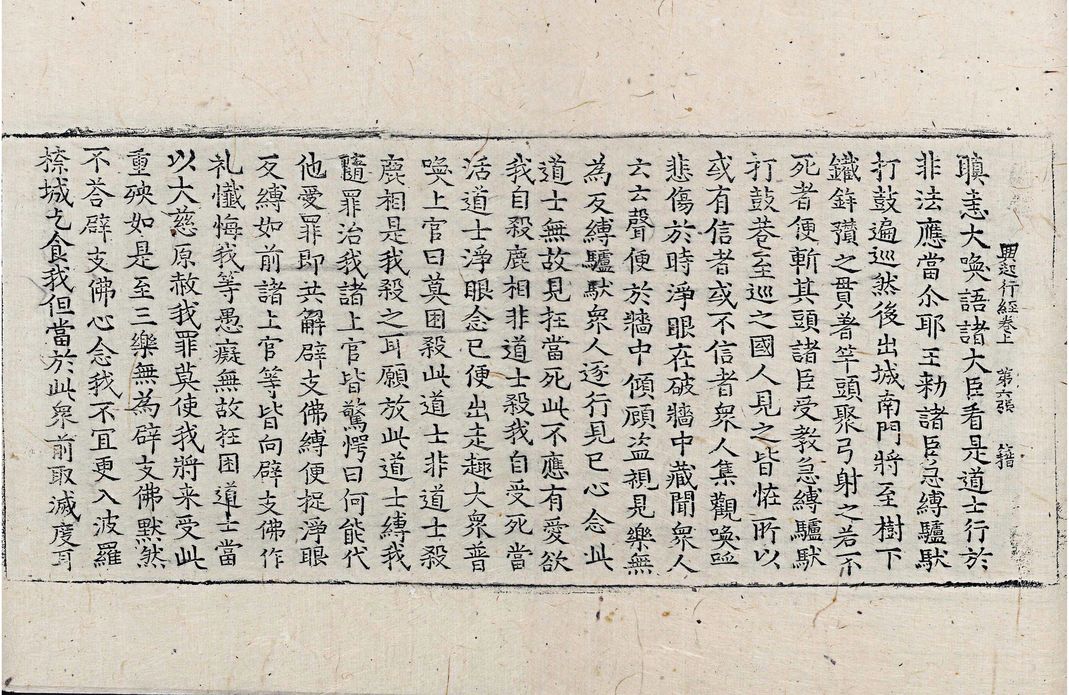 興起行經卷上 第六張 籍
瞋恚大喚語諸大臣看是道士行於
非法應當尒耶王勑諸臣急縛驢馱
打鼓遍巡然後出城南門將至樹下
鐵鉾䂎之貫著竿頭聚弓射之若不
死者便斬其頭諸臣受教急縛驢馱
打鼓巷至巡之國人見之皆恠所以
或有信者或不信者衆人集觀喚呼
悲傷於時淨眼在破牆中藏聞衆人
云云聲便於牆中傾顧盜視見樂無
為反縛驢馱衆人逐行見已心念此
道士無故見抂當死此不應有愛欲
我自殺鹿相非道士殺我自受死當
活道士淨眼念已便出走趣大衆普
喚上官曰莫困殺此道士非道士殺
鹿相是我殺之耳願放此道士縛我
隨罪治我諸上官皆驚愕曰何能代
他受罪即共解辟支佛縛便捉淨眼
反縛如前諸上官等皆向辟支佛作
礼懺悔我等愚癡無故抂困道士當
以大慈原赦我罪莫使我將來受此
重殃如是至三樂無為辟支佛默然
不荅辟支佛心念我不宜更入波羅
㮈城乞食我但當於此衆前取滅度耳